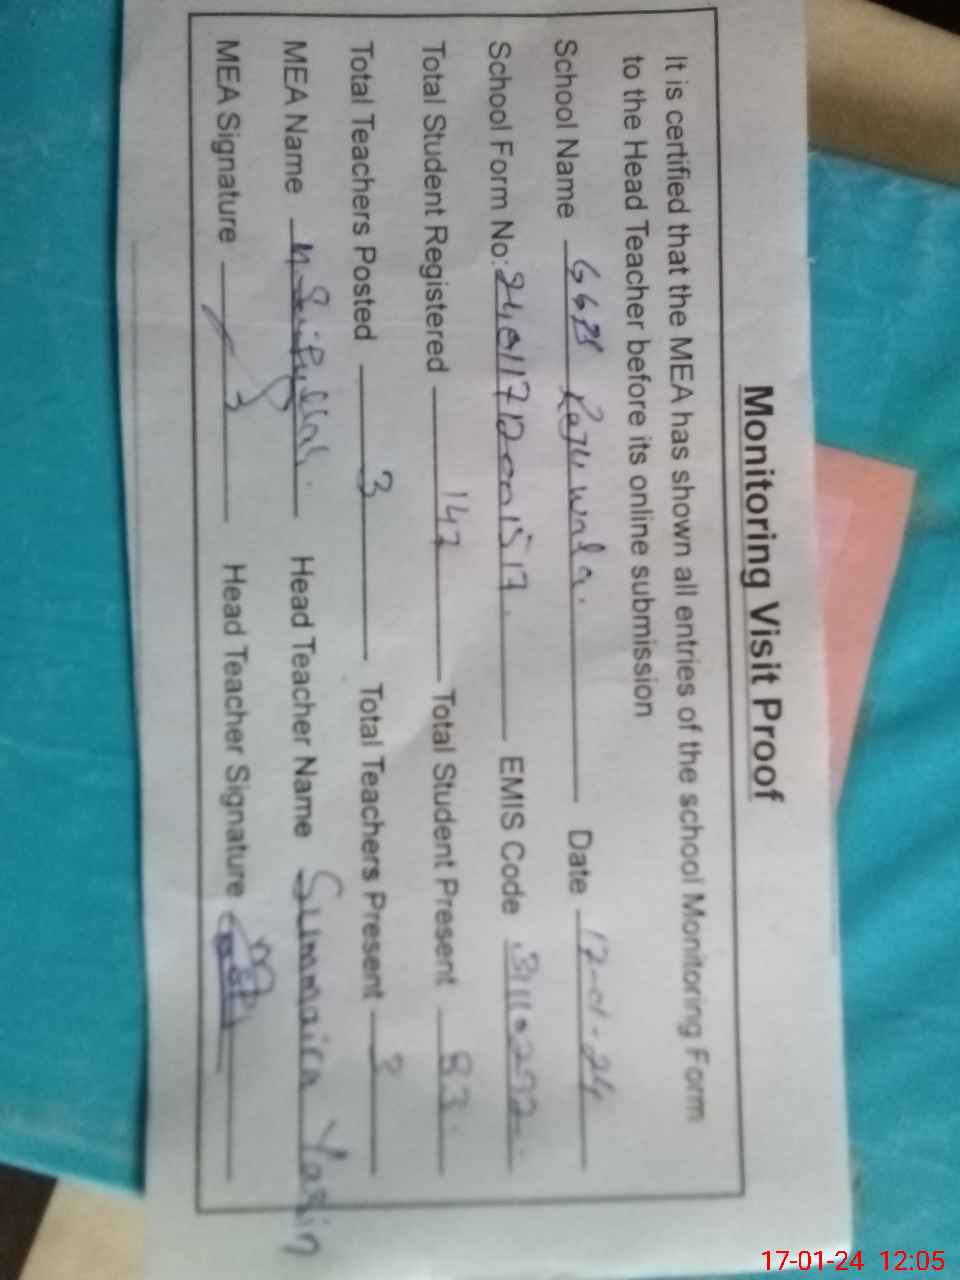 Monitoring Visit Proof
It is certified that the MEA has shown all entries of the school Monitoring Form
to the Head Teacher before its online submission
School Name GGPS Rajuwala. Date 17-01-24
School Form No: EMIS Code
Total Student Registered 147 Total Student Present 83.
Total Teachers Posted 3 Total Teachers Present 3
MEA Name M Saifullah. Head Teacher Name Summaira Yasin
MEA Signature Head Teacher Signature
17-01-24 12:05